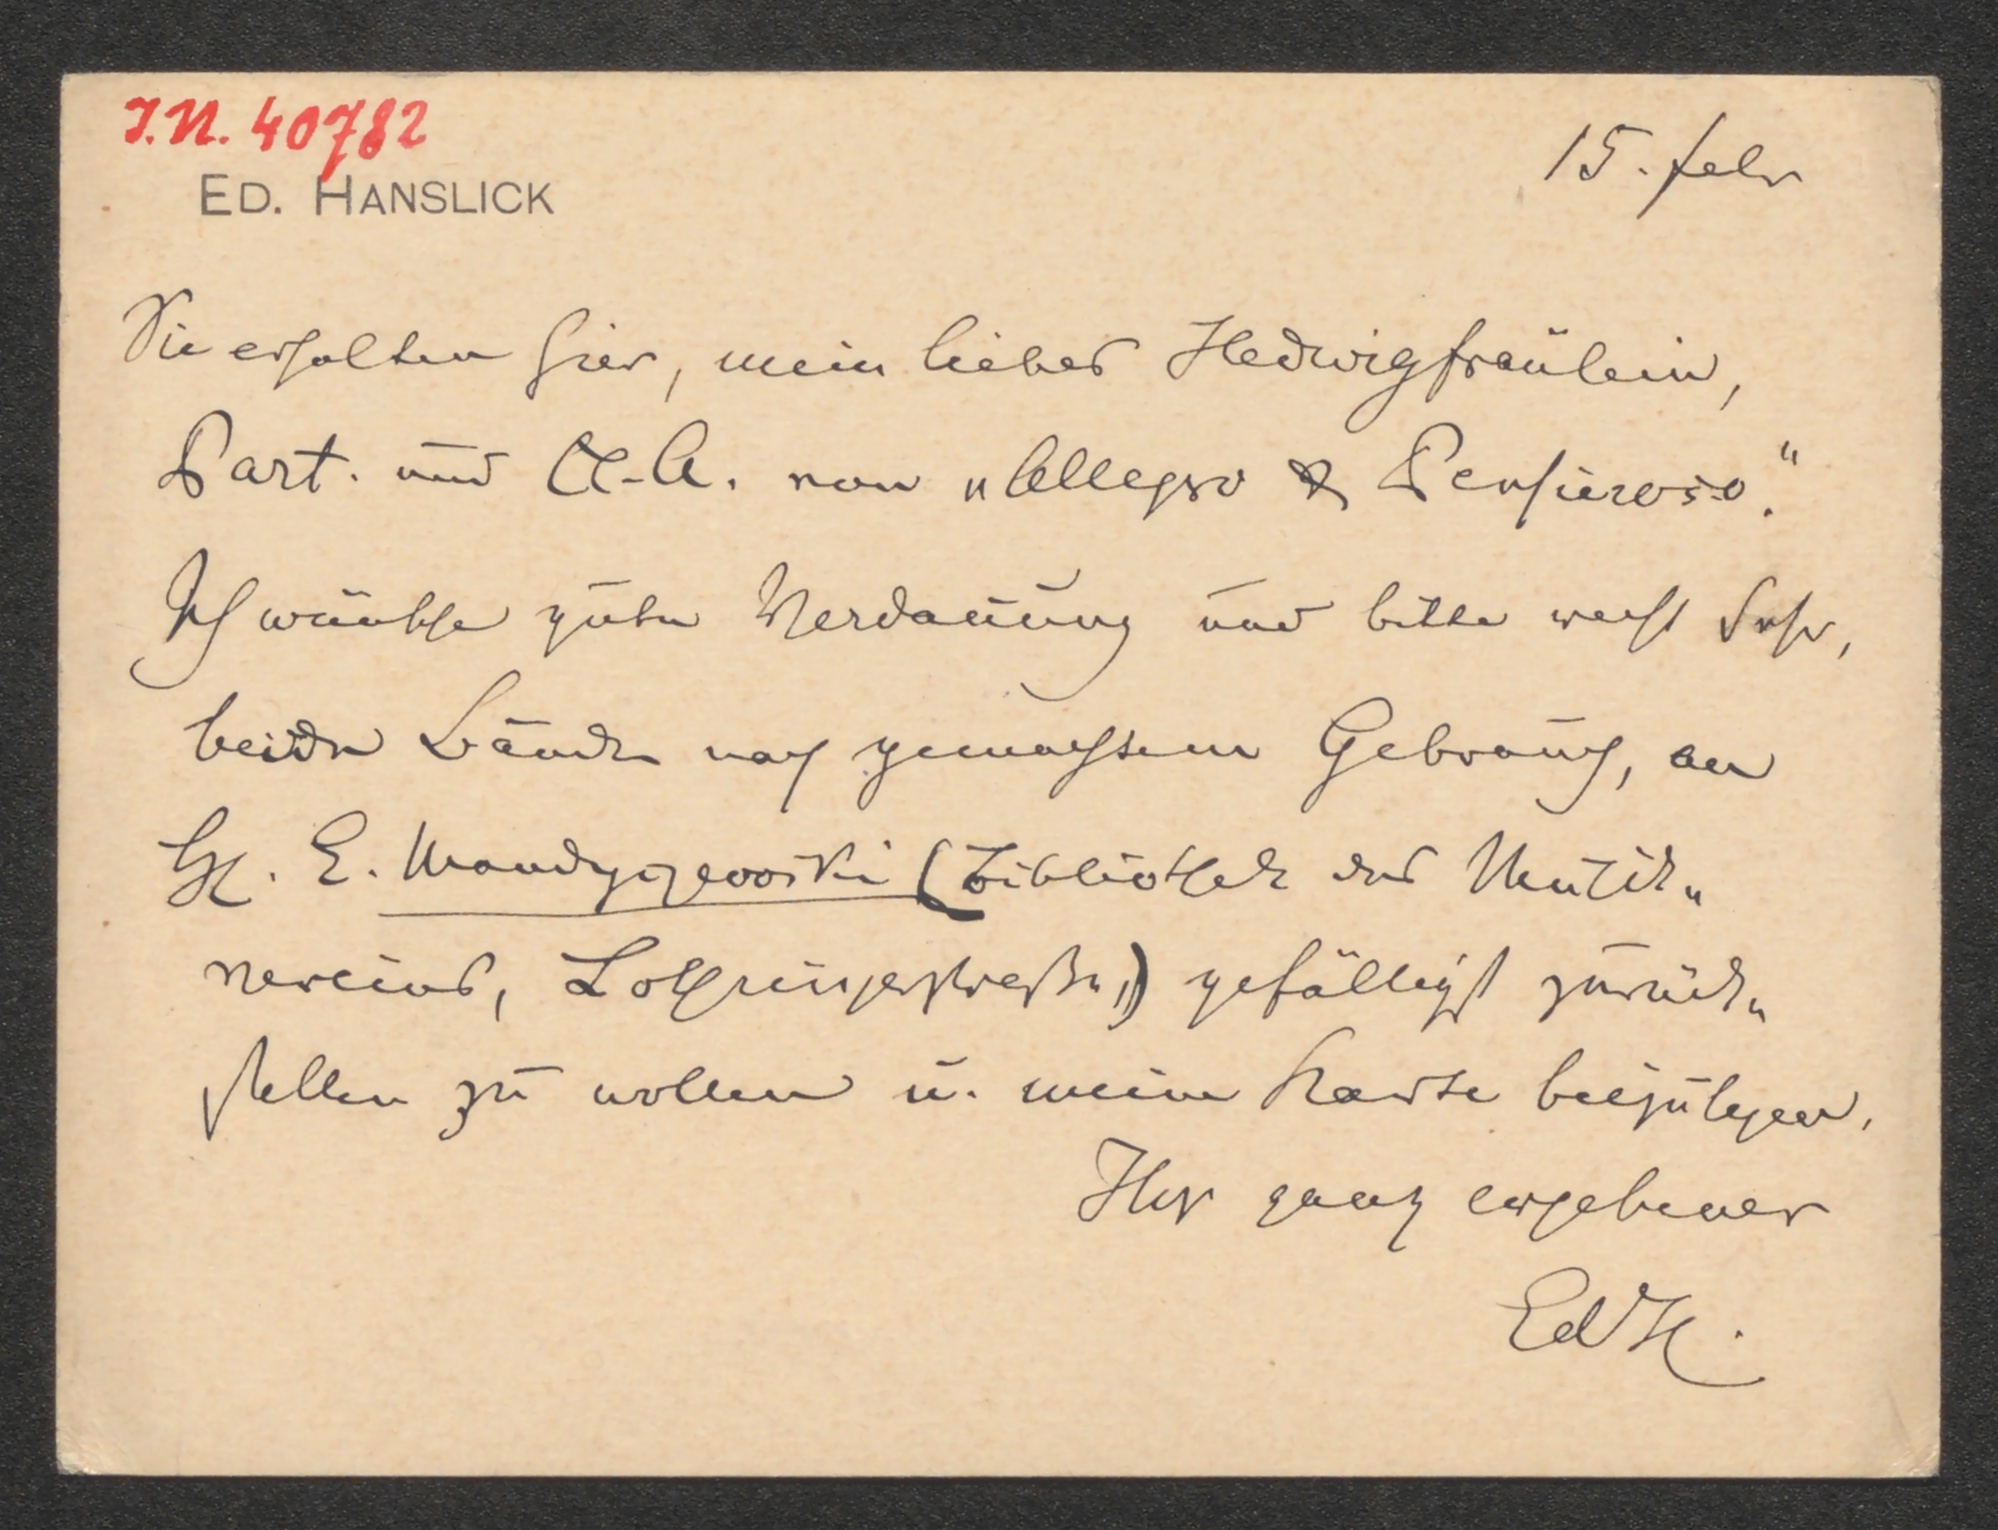 I.N. 40782
ED. HANSLICK
15. Febr
Sie erhalten hier, mein liebes Hedwigfräulein,
Part. und Cl.-A. von „Allegro & Pensieroso."
Ich wünsche gute Verdauung und bitte recht sehr,
beide Bände nach gemachtem Gebrauch, an
H. E. Mandyczewski (Bibliothek des Musik„
vereins, Lothringerstraße,) gefälligst zurück„
stellen zu wollen u. meine Karte beizulegen.
Ihr ganz ergebener
EdH.